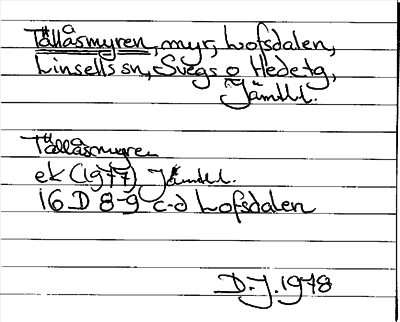 Tällåsmyren, myr, Lofsdalen,
Linsells sn, Svegs o Hede tg,
Jämtl.
Tällåsmyren
ek (1977) Jämtl.
16 D 8-9 c-d Lofsdalen
D.J. 1978